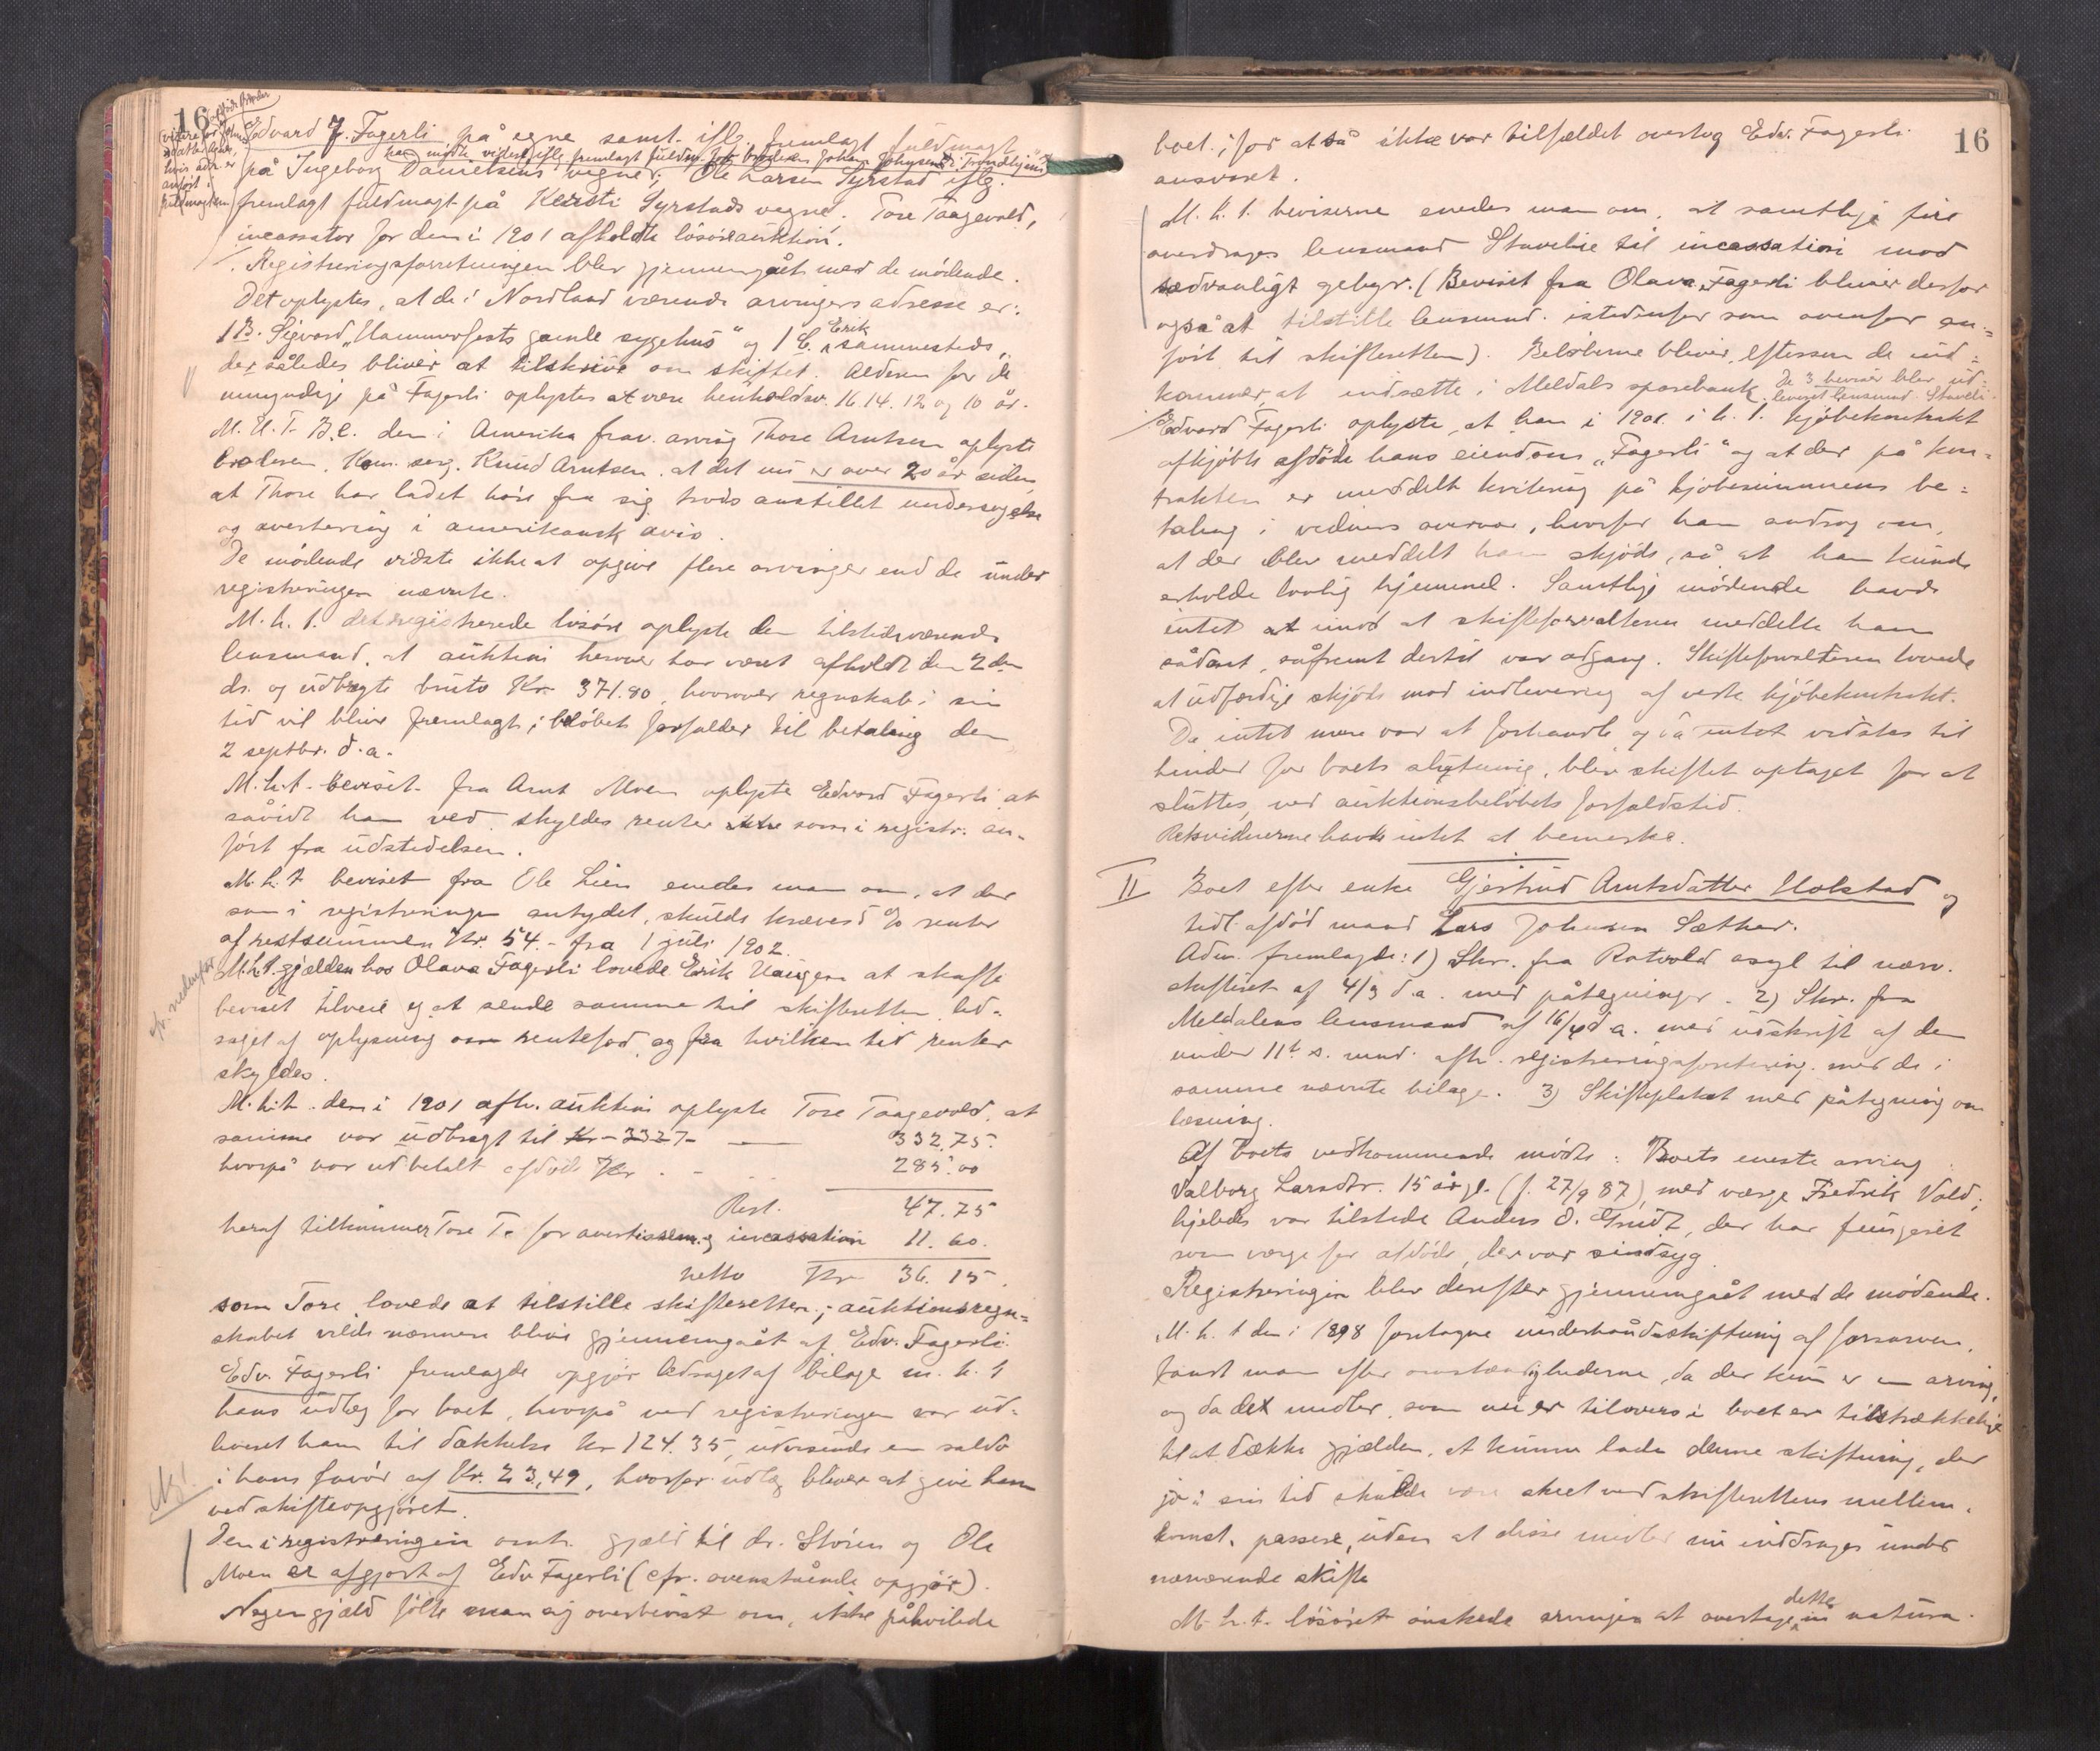 16
Edvard J. Fagerli på egne samt iflg. fremlagt fuldmagt
han mødte videre iflg. fremlagt fuldm. for broderen Johan Johnsen i Trondhjem
på Ingeborg Danielsens vegne; Ole Larsen Syrstad iflg.
fremlagt fuldmagt på Kersti Syrstads vegne. Tore Taagevold,
incassator for den i 1901 afholdte løsøreauktion.
Registreringsforretningen blev gjennemgået med de mødende.
Det oplystes, at de i Nordland værende arvingers adresse er:
1 B. Sigvard „Hammerfests gamle sygehus" og 1 C. Erik sammesteds,
der således bliver at tilskrive om skiftet. Alderen for de
umyndige på Fagerli oplystes at være henholdsv. 16. 14. 12 og 10 år.
den i Amerika frav. arving Thore Arntsen oplyste
broderen, Kom. serg. Knud Arntsen, at det nu er over 20 år siden
at Thore har ladet høre fra sig trods anstillet undersøgelse
og avertering i amerikansk avis.
De mødende vidste ikke at opgive flere arvinger end de under
registreringen nævnte.
M. h. t. det registrerede løsøre oplyste den tilstedeværende
lensmand, at auktion herover har været afholdt den 2 den
ds. og udbragte bruto Kr. 371.80, hvorover regnskab i sin
tid vil blive fremlagt; beløbet forfalder til betaling den
2 septbr. d.a.
M.h.t. beviset fra Arnt Moen oplyste Edvard Fagerli at
såvidt han ved skyldes renter som i registr. an-
ført fra udstedelsen.
M.h.t. beviset fra Ole Lien enedes man om, at der
som i registreringen antydet, skulde kræves 5 % renter
af restsummen Kr. 54.- fra 1 juli 1902.
cfr. nedenfor
M.h.t. gjælden hos Olava Fagerli lovede Erik Haugen at skaffe
beviset tilveie og at sende samme til skifteretten led-
saget af oplysning om rentefod og fra hvilken tid renter
skyldes.
M.h.t. den i 1901 afh. auktion oplyste Tore Taagevold, at
samme var udbragt til Kr. 3327- — 332.75.
hvorpå var udbetalt afdøde Kr. - 285.00
Rest. 47.75
heraf tilkommer Tore T. for avertissem. og incassation 11.60.
netto Kr 36.15.
som Tore lovede at tilstille skifteretten; auktionsregn-
skabet vilde nærmere blive gjennemgået af Edv. Fagerli.
Edv. Fagerli fremlagde opgjør ledsaget af bilage m. h. t
hans udlæg for boet, hvorpå ved registreringen var ud-
leveret ham til dækkelse Kr 124.35, udvisende en saldo
i hans favør af Kr. 23,49, hvorfor udlæg bliver at give ham
ved skifteopgjøret.
Den i registreringen omh. gjæld til dr. Støren og Ole
Moen er afgjort af Edv. Fagerli (cfr. ovenstående opgjør).
Nogen gjæld følte man sig overbevist om, ikke påhvilede
16
boet; for at så ikke var tilfældet overtog Edv. Fagerli
ansvaret.
M. h. t. beviserne enedes man om, at samtlige fire
overdrages lensmand Stavelie til incassation mod
sædvanligt gebyr. (Beviset fra Olava Fagerli bliver derfor
også at tilstille lensmand. istedenfor som ovenfor an-
ført til skifteretten). Beløbene bliver, eftersom de ind-
kommer, at indsætte i Meldals sparebank. De 3 beviser blev ud-
leveret lensmand Staveli.
Edvard Fagerli oplyste, at han i 1901 i h. t. kjøbekontrakt
afkjøbte afdøde hans eiendom „Fagerli" og at der på kon-
trakten er meddelt kvitering på kjøbesummens be-
taling i vidners overvær, hvorfor han androg om,
at der blev meddelt ham skjøde, så at han kunde
erholde lovlig hjemmel. Samtlige mødende havde
intet at imod at skifteforvalteren meddelte ham
sådant, såfremt dertil var adgang. Skifteforvalteren lovede
at udfærdige skjøde mod indlevering af kjøbekontrakt.
Da intet mere var at forhandle og da intet vidstes til
hinder for boets slutning, blev skiftet optaget for at
sluttes, ved auktionsbeløbets forfaldstid.
Retsvidnerne havde intet at bemerke.
II Boet efter enke Gjertrud Arntsdatter Holstad og
tidl. afdød mand Lars Johnsen Sæther.
Adm. fremlagde: 1) Skr. fra Rotvold asyl til nærv.
skifteret af 4/3 d.a. med påtegninger. 2) Skr. fra
Meldalens lensmand af 16/4 d.a. med udskrift af den
under 11t. s. mnd. afh. registreringsforretning med de i
samme nævnte bilage. 3) Skifteplakat med påtegning om
læsning.
Af boets vedkommende mødte: Boets eneste arving
Valborg Larsdtr. 15 år gl. (f. 27/9 87), med værge Fredrik Vold;
ligeledes var tilstede Anders O. Grudt, der har fungeret
som værge for afdøde, der var sindsyg.
Registreringen blev derefter gjennemgået med de mødende.
M. h. t den i 1898 foretagne underhåndsskiftning af farsarven,
fandt man efter omstændighederne, da der kun er en arving,
og da det midler, som nu er tilovers i boet er tilstrækkelige
til at dække gjælden, at kunne lade denne skiftning, der
jo i sin tid skulde være skeet ved skifterettens mellem-
komst, passere, uden at disse midler nu inddrages under
nærværende skifte
M. h. t. løsøret ønskede arvingen at overtage dette in natura.